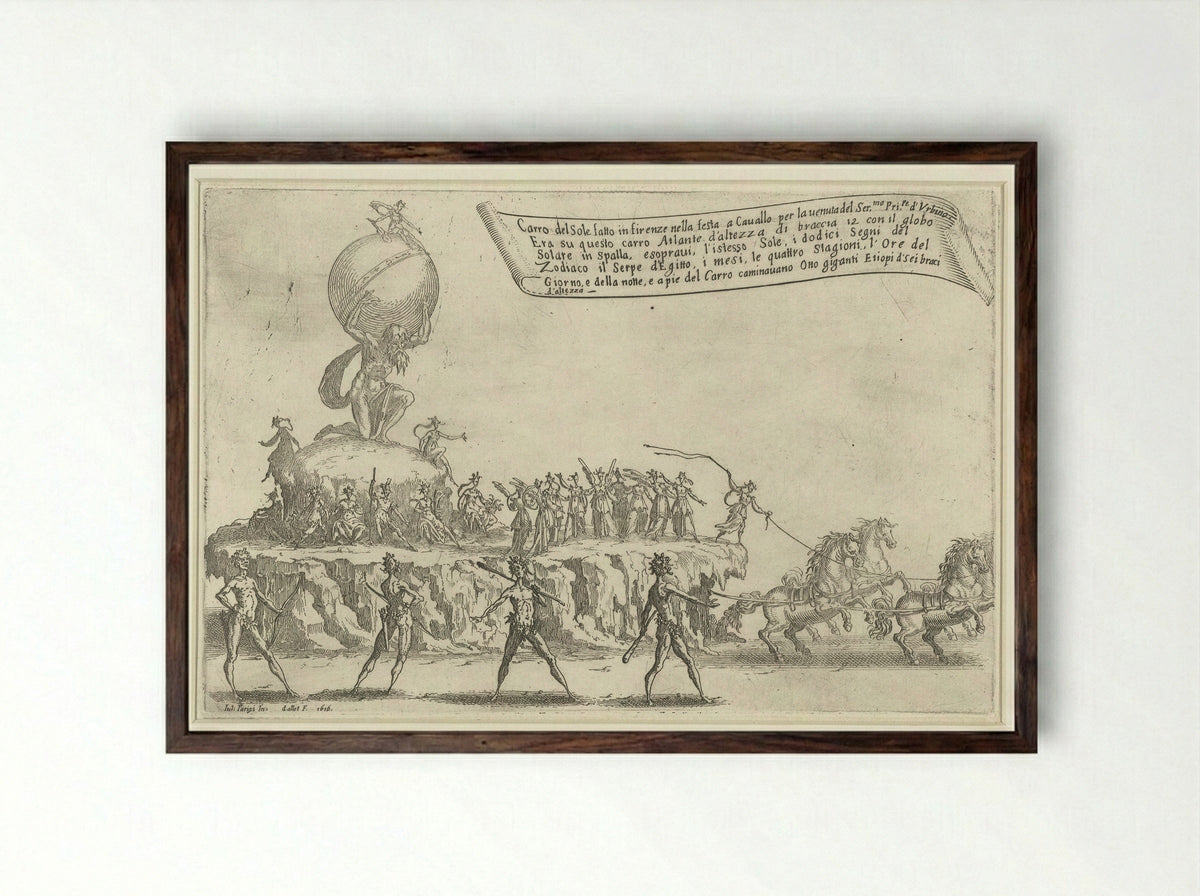 Carro del Sole fatto in firenze nella festa a Cauallo per la uenuta del Ser.mo Pri.pe d'Vrbino.
Era su questo carro Atlante d'altezza di braccia 12 con il globo
Solare in spalla, esopraui, l'istesso Sole, i dodici Segni del
Zodiaco il Serpe d'Egitto, i mesi, le quattro Stagioni, l'Ore del
Giorno, e della notte, e a pie del Carro caminauano Otto giganti Etiopi d'sei braci
d'altezza
Iul: Parigi In:   Callot F. 1616.